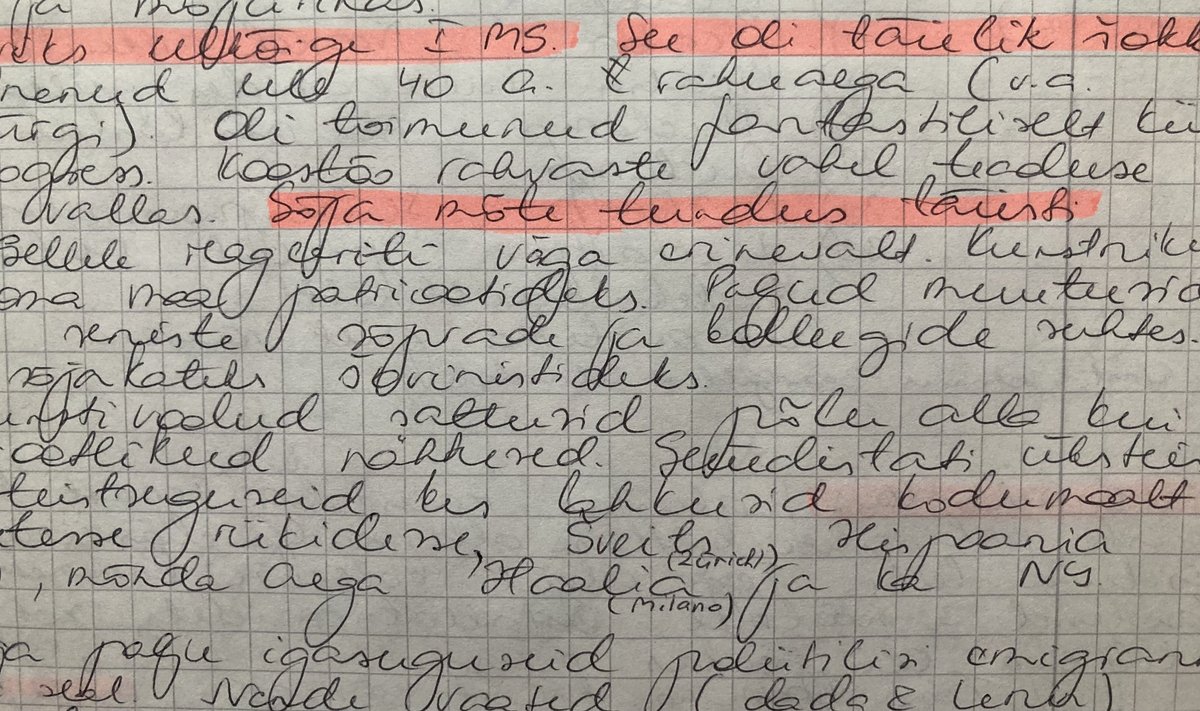 ja mõjurikas.
eks ülkõige I MS. See oli täielik šokk
nenud üle 40 a. rahuaega (v.a.
ürgi). Oli toimunud fantastiliselt kii
ogress. Koostöö rahvaste vahel teaduse
vallas. Sõja mõte tundus täiesti
Sellele reageeriti väga erinevalt. Kunstnike
oma maa patriootideks. Paljud muutusid
seniste sõprade ja kolleegide suhtes.
sõjakateks šovinistideks.
unstivoolud sattusid põlu alla kui
oetlikud nähtused. Süüdistati üksteis
teistsuguseid kes lahkusid kodumaalt
tesse riikidesse, Šveits (Zürich) Hispaania
, mõnda aega Itaalia (Milano) ja ka NY.
ja pagu igasuguseid poliitilisi emigran
seal Nende vaated (dada & Lenin)